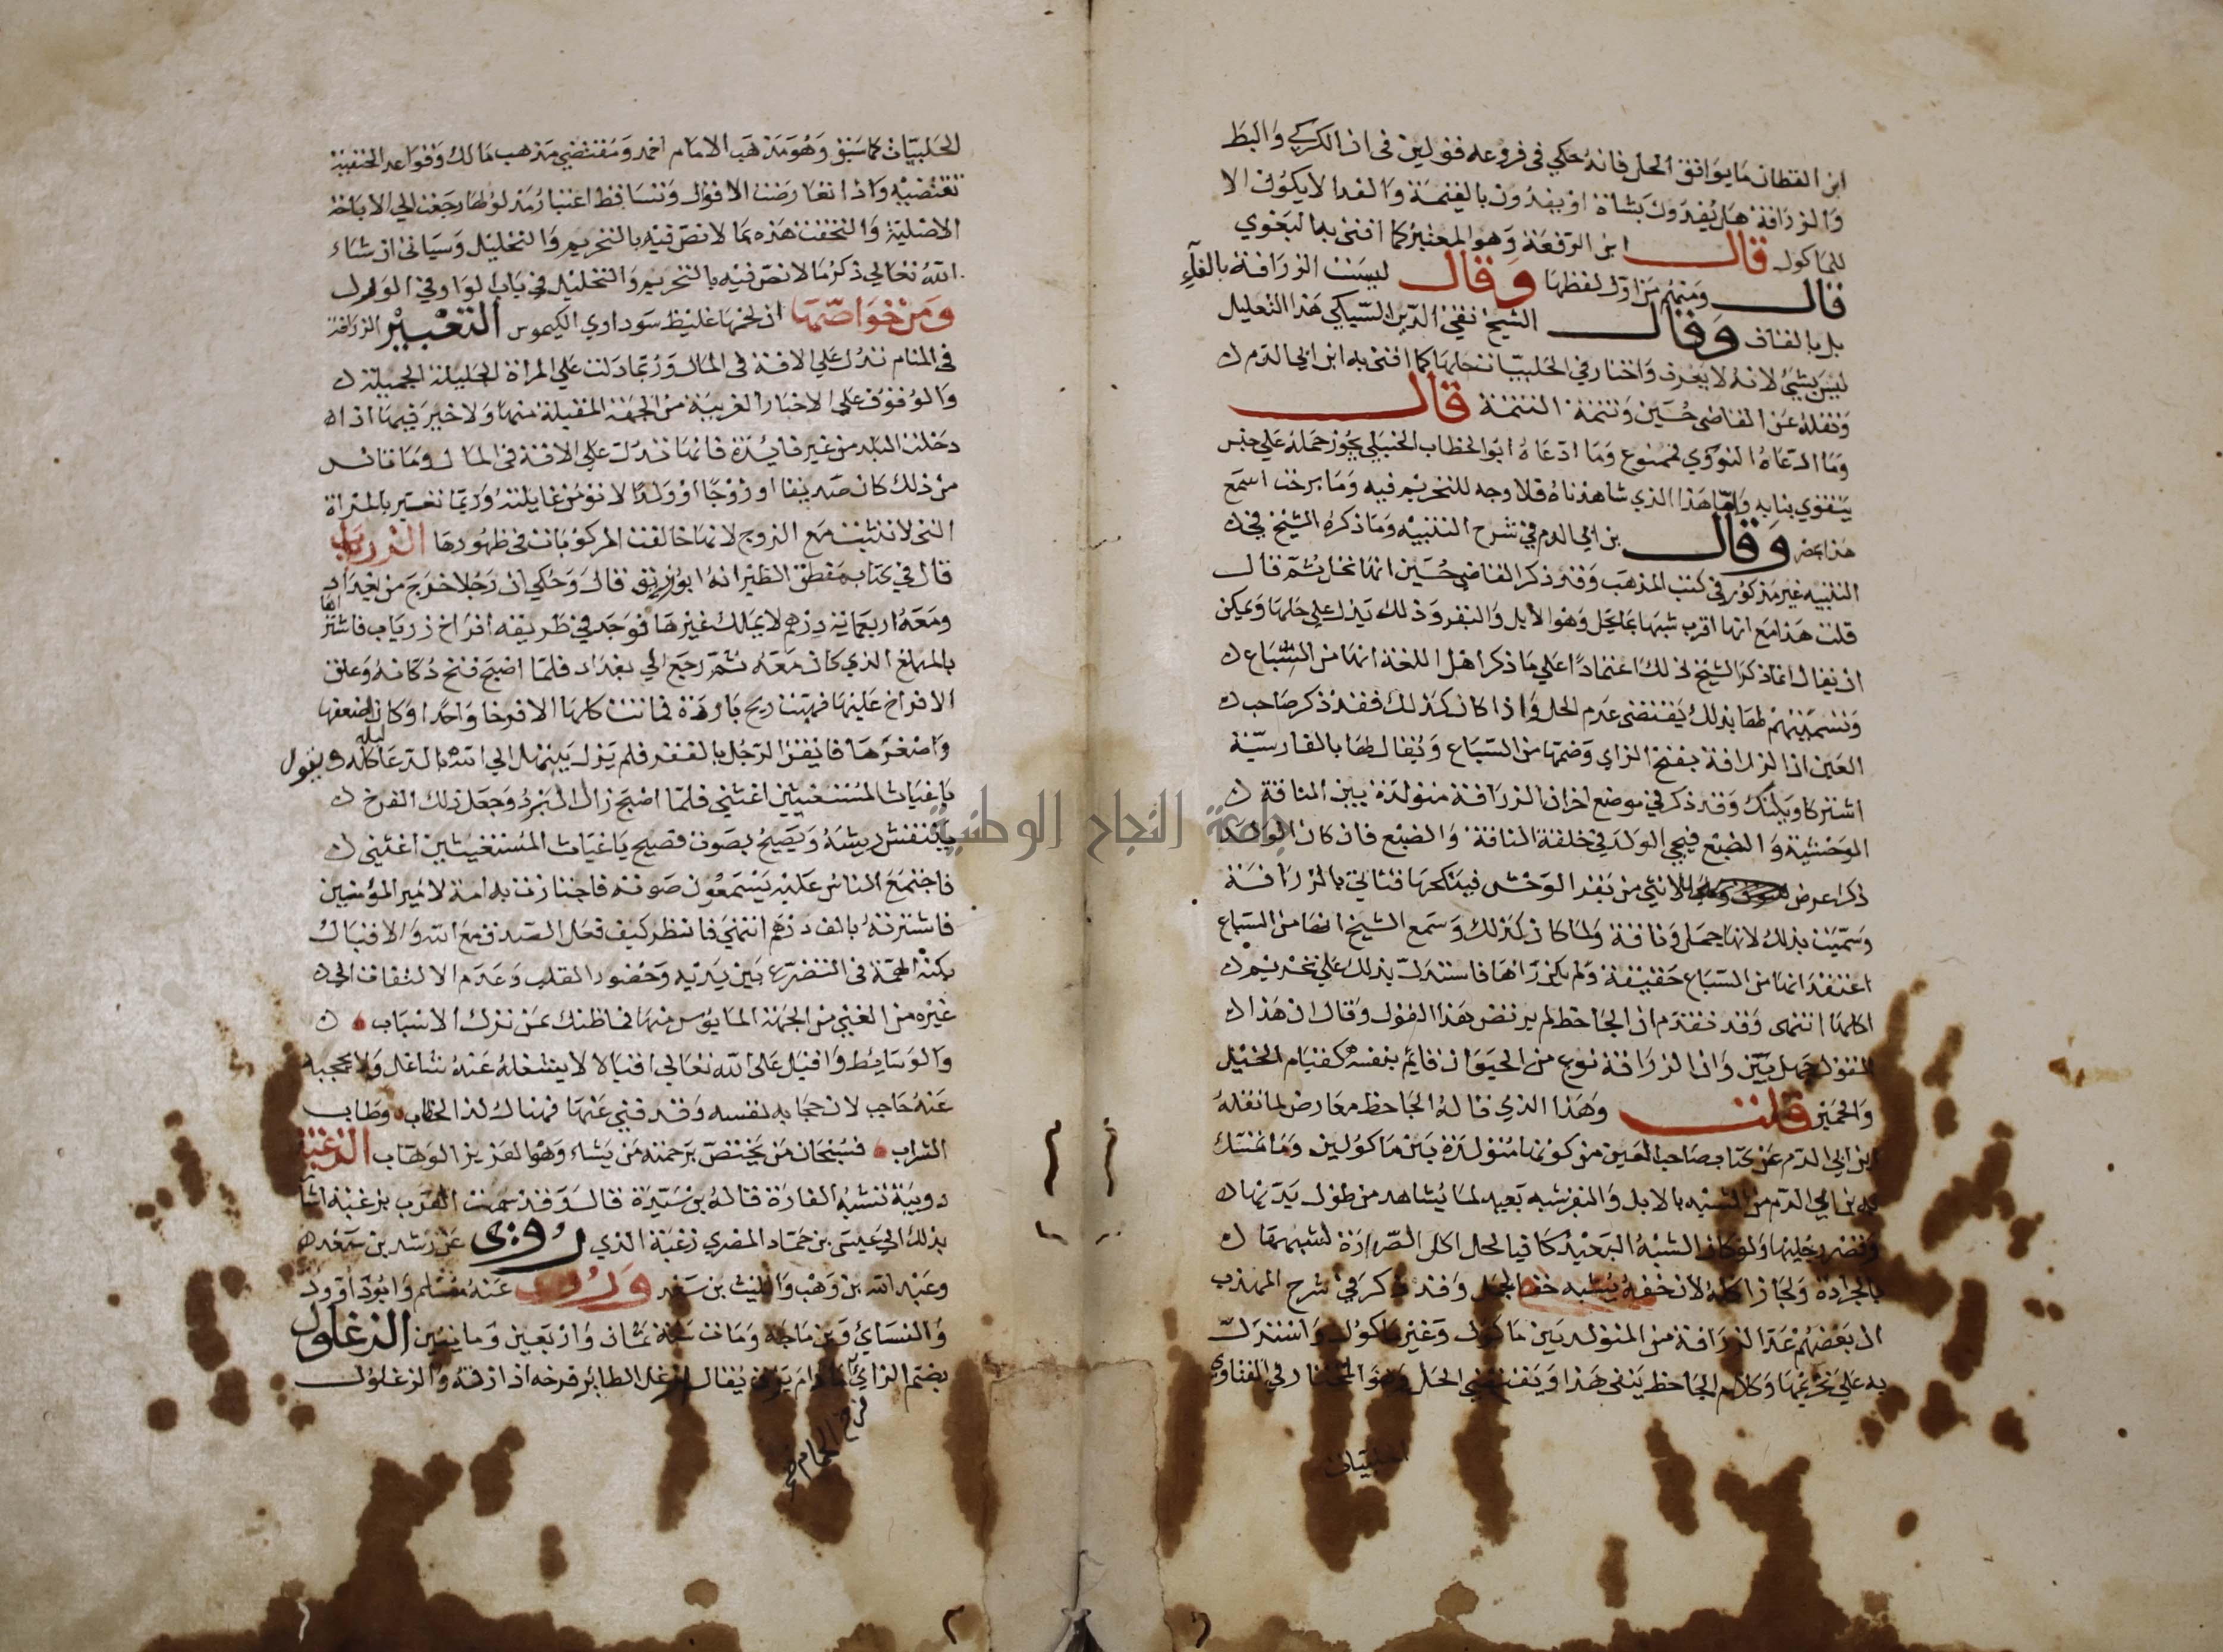 ابن القطان ما يوافق الحل فانه حكي في فروعه قولين في ان الكركي والبط
والزرافة هل يفدون بشاة او يفدون بالقيمة والفدا لا يكون الا
للماكول قال ابن الرفعة وهو المعتبر كما افتى به البغوي
قال ومنهم من اول لفظها وقال ليست الزرافة بالفاء
بل بالقاف وقال الشيخ تقي الدين السبكي هذا التعليل
ليس بشيء لانه لا يعرف واختار في الحلبيات حلها كما افتى به ابن ابي الدم
ونقله عن القاضي حسين وتتمة التتمة قال
وما ادعاه النووي فممنوع وما ادعاه ابو الخطاب الحنبلي يجوز حمله على جنس
يتقوي بنابه واما هذا الذي شاهدناه فلا وجه للتحريم فيه وما برحت اسمع
هذا بمصر وقال بن ابي الدم في شرح التنبيه وما ذكره الشيخ في
التنبيه غير مذكور في كتب المذهب وقد ذكر القاضي حسين انها تحل ثم قال
قلت هذا مع انها اقرب شبها بما يحل وهو الابل والبقر وذلك يدل على حلها ويمكن
ان يقال انما ذكر الشيخ ذلك اعتمادا على ما ذكر اهل اللغة انها من السباع
وتسميتهم لها بذلك يقتضي عدم الحل واذا كان كذلك فقد ذكر صاحب
العين ان الزرافة بفتح الزاي وضمها من السباع ويقال لها بالفارسية
اشتركاوبلنك وقد ذكر في موضع اخر ان الزرافة متولدة بين الناقة
الوحشية والضبع فيجي الولد في خلقة الناقة والضبع فان كان الولد
ذكرا عرض للانثي من بقر الوحش فينكحها فتاتي بالزرافة
وسميت بذلك لانها جمل وناقة ولما كان كذلك وسمع الشيخ انها من السباع
اعتقد انها من السباع حقيقة ولم يكن راها فاستدل بذلك على تحريم
اكلها انتهى وقد تقدم ان الجاحظ لم يرتض هذا القول وقال ان هذا
القول جهل بين وان الزرافة نوع من الحيوان قايم بنفسه كقيام الخيل
والحمير قلت وهذا الذي قاله الجاحظ معارض لما نقله
ابن ابي الدم عن كتاب صاحب العين من كونها متولدة بين ماكولين وما تمسك
به بن ابي الدم من الشبه بالابل والبقر شبه بعيد لما يشاهد من طول يديها
وقصر رجليها ولو كان الشبه البعيد كافيا لحل اكل الصرارة لشبهها
بالجرادة ولجاز اكله لان خفه يشبه خف الجمل وقد ذكر في شرح المهذب
ان بعضهم عد الزرافة من المتولد بين ماكول وغير ماكول واستدل
به على تحريمها وكلام الجاحظ ينفي هذا ويقتضي الحل وهو المختار في الفتاوي
الحلبيات
الحلبيات كما سبق وهو مذهب الامام احمد ومقتضي مذهب مالك وقواعد الحنفية
تقتضيه واذا تعارضت الاقوال وتساقط اعتبار مدلولها رجعت الي الاباحة
الاصلية والتحقت هذه بما لا نص فيه بالتحريم والتحليل وسياتي ان شاء
الله تعالي ذكر ما لا نص فيه بالتحريم والتحليل في باب الواو في الورل
ومن خواصها ان لحمها غليظ سوداوي الكيموس التعبير الزرافة
في المنام تدل علي الافة في المال وربما دلت علي المراة الجليلة الجميلة
والوقوف علي الاخبار الغريبة من الجهة المقبلة منها ولا خير فيها اذا
دخلت البلد من غير فايدة فانها تدل علي الافة في المال وما تانس
من ذلك كان صديقا او زوجا او ولدا لا تؤمن غايلته وربما تعبر بالمراة
التي لا تثبت مع الزوج لانها خالفت المركوبات في ظهورها الزرياب
قال في كتاب منطق الطير انه ابو زريق قال وحكي ان رجلا خرج من بغداد
ومعه اربعماية درهم لا يملك غيرها فوجد في طريقه افراخ زرياب فاشتراها
بالمبلغ الذي كان معه ثم رجع الي بغداد فلما اصبح فتح دكانه وعلق
الافراخ عليها فهبت ريح باردة فماتت كلها الا فرخا واحدا وكان اضعفها
واصغرها فايقن الرجل بالفقر فلم يزل يبتهل الي الله بالدعا ليله كله ويقول
ياغياث المستغيثين اغثني فلما اصبح زال البرد وجعل ذلك الفرخ
ينفش ريشه ويصيح بصوت فصيح ياغياث المستغيثين اغثني
فاجتمع الناس عليه يستمعون صوته فاجتازت به امة لامير المؤمنين
فاشترته بالف درهم انتهي فانظر كيف فعل الصدق مع الله والاقبال
بكنه الهمة في التضرع بين يديه وحضور القلب وعدم الالتفات الي
غيره من الغني من الجهة المايوس منها فما ظنك بمن ترك الاسباب
والوسايط واقبل على الله تعالي اقبالا لا يشغله عنه شاغل ولا يحجبه
عنه حاجب لان حجابه نفسه وقد فني عنها فهناك لذ الخطاب وطاب
الشراب فسبحان من يختص برحمته من يشاء وهو العزيز الوهاب الزغبة
دويبة تشبه الفارة قاله بن سيدة قال وقد سمت العرب بزغبة اشار
بذلك الي عيسى بن حماد المصري زغبة الذي روى عن رشد بن سعد
وعبد الله بن وهب والليث بن سعد وروى عنه مسلم وابو داوود
والنسائي وبن ماجة ومات سنة ثمان واربعين وماتين الزغلول
بضم الزاي ما دام يزق يقال ازغل الطاير فرخه اذا زقه والزغلول
فرخ الحمام
جامعة النجاح الوطنية